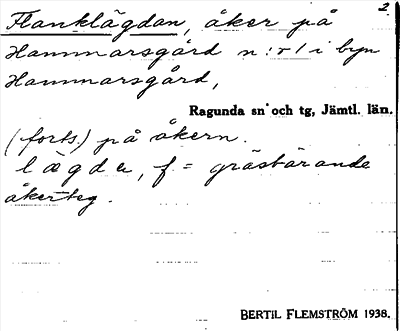 2.
Flanklägdan, åker på
Hammarsgård n:r 1 i byn
Hammarsgård,
Ragunda sn och tg, Jämtl. län.
(forts.) på åkern.
lägda, f = gräsbärande
åkerteg.
BERTIL FLEMSTRÖM 1938.